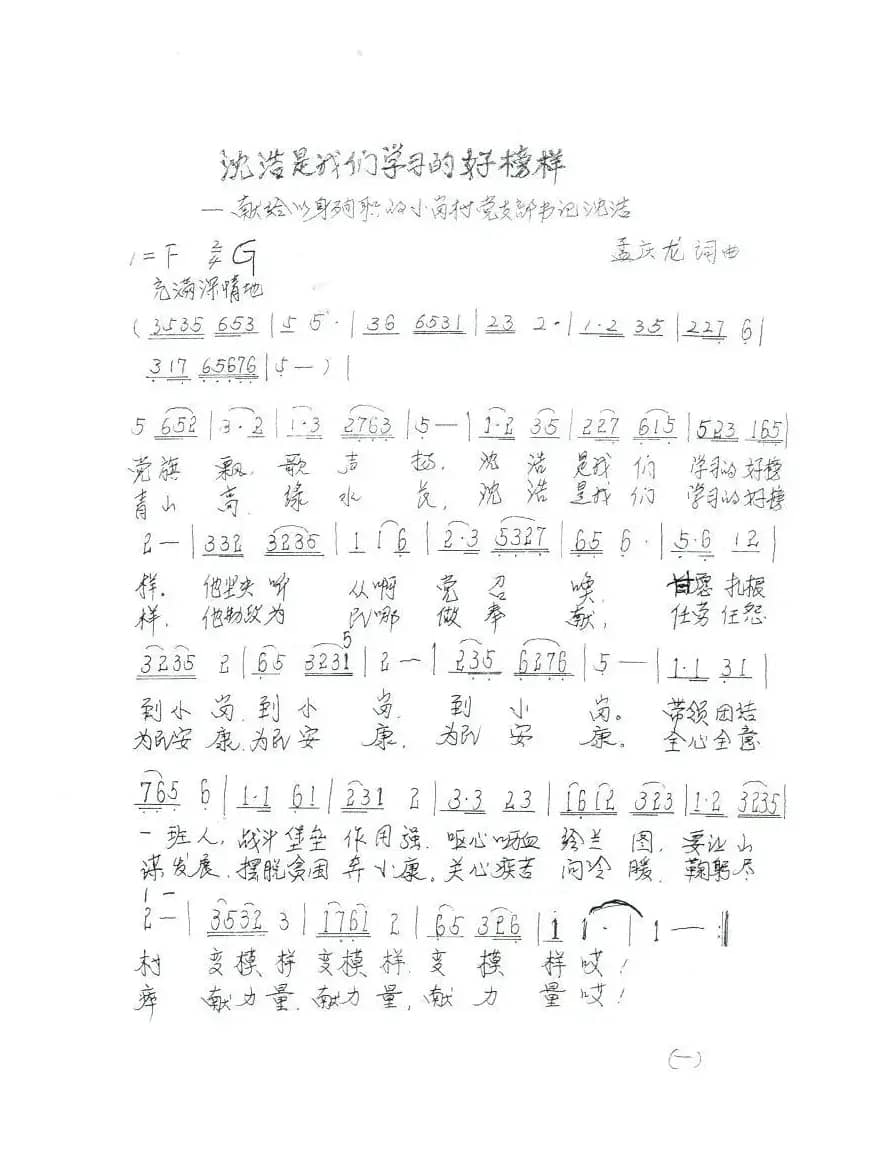 沈浩是我们学习的好榜样
—献给以身殉职的小岗村党支部书记沈浩
1=F 2/4 G 孟庆龙 词曲
充满深情地
(3535 653|5 5·|36 6531|23 2·|1·2 35|227 6|
317 65676|5—)|
5 652|3·2|1·3 2763|5—|1·2 35|227 615|523 165|
党旗飘,歌声扬,沈浩是我们学习的好榜
青山高,绿水长,沈浩是我们学习的好榜
2—|332 3235|1 1 6|2·3 5327|65 6·|5·6 12|
样。他坚决听从啊党召唤,甘愿扎根
样,他勤政为民哪做奉献,任劳任怨
5
3235 2|65 3231|2—|235 6276|5—|1·1 31|
到小岗,到小岗,到小岗。带领团结
为民安康,为民安康,为民安康。全心全意
765 6|1·1 61|231 2|3·3 23|1612 323|1·2 3235|
一班人,战斗堡垒作用强,呕心沥血绘兰图,要让山
谋发展,摆脱贫困奔小康。关心疾苦问冷暖,鞠躬尽
1—
2—|3532 3|1761 2|65 326|1 1·|1—:‖
村变模样变模样,变模样哎!
瘁献力量,献力量,献力量哎!
(一)